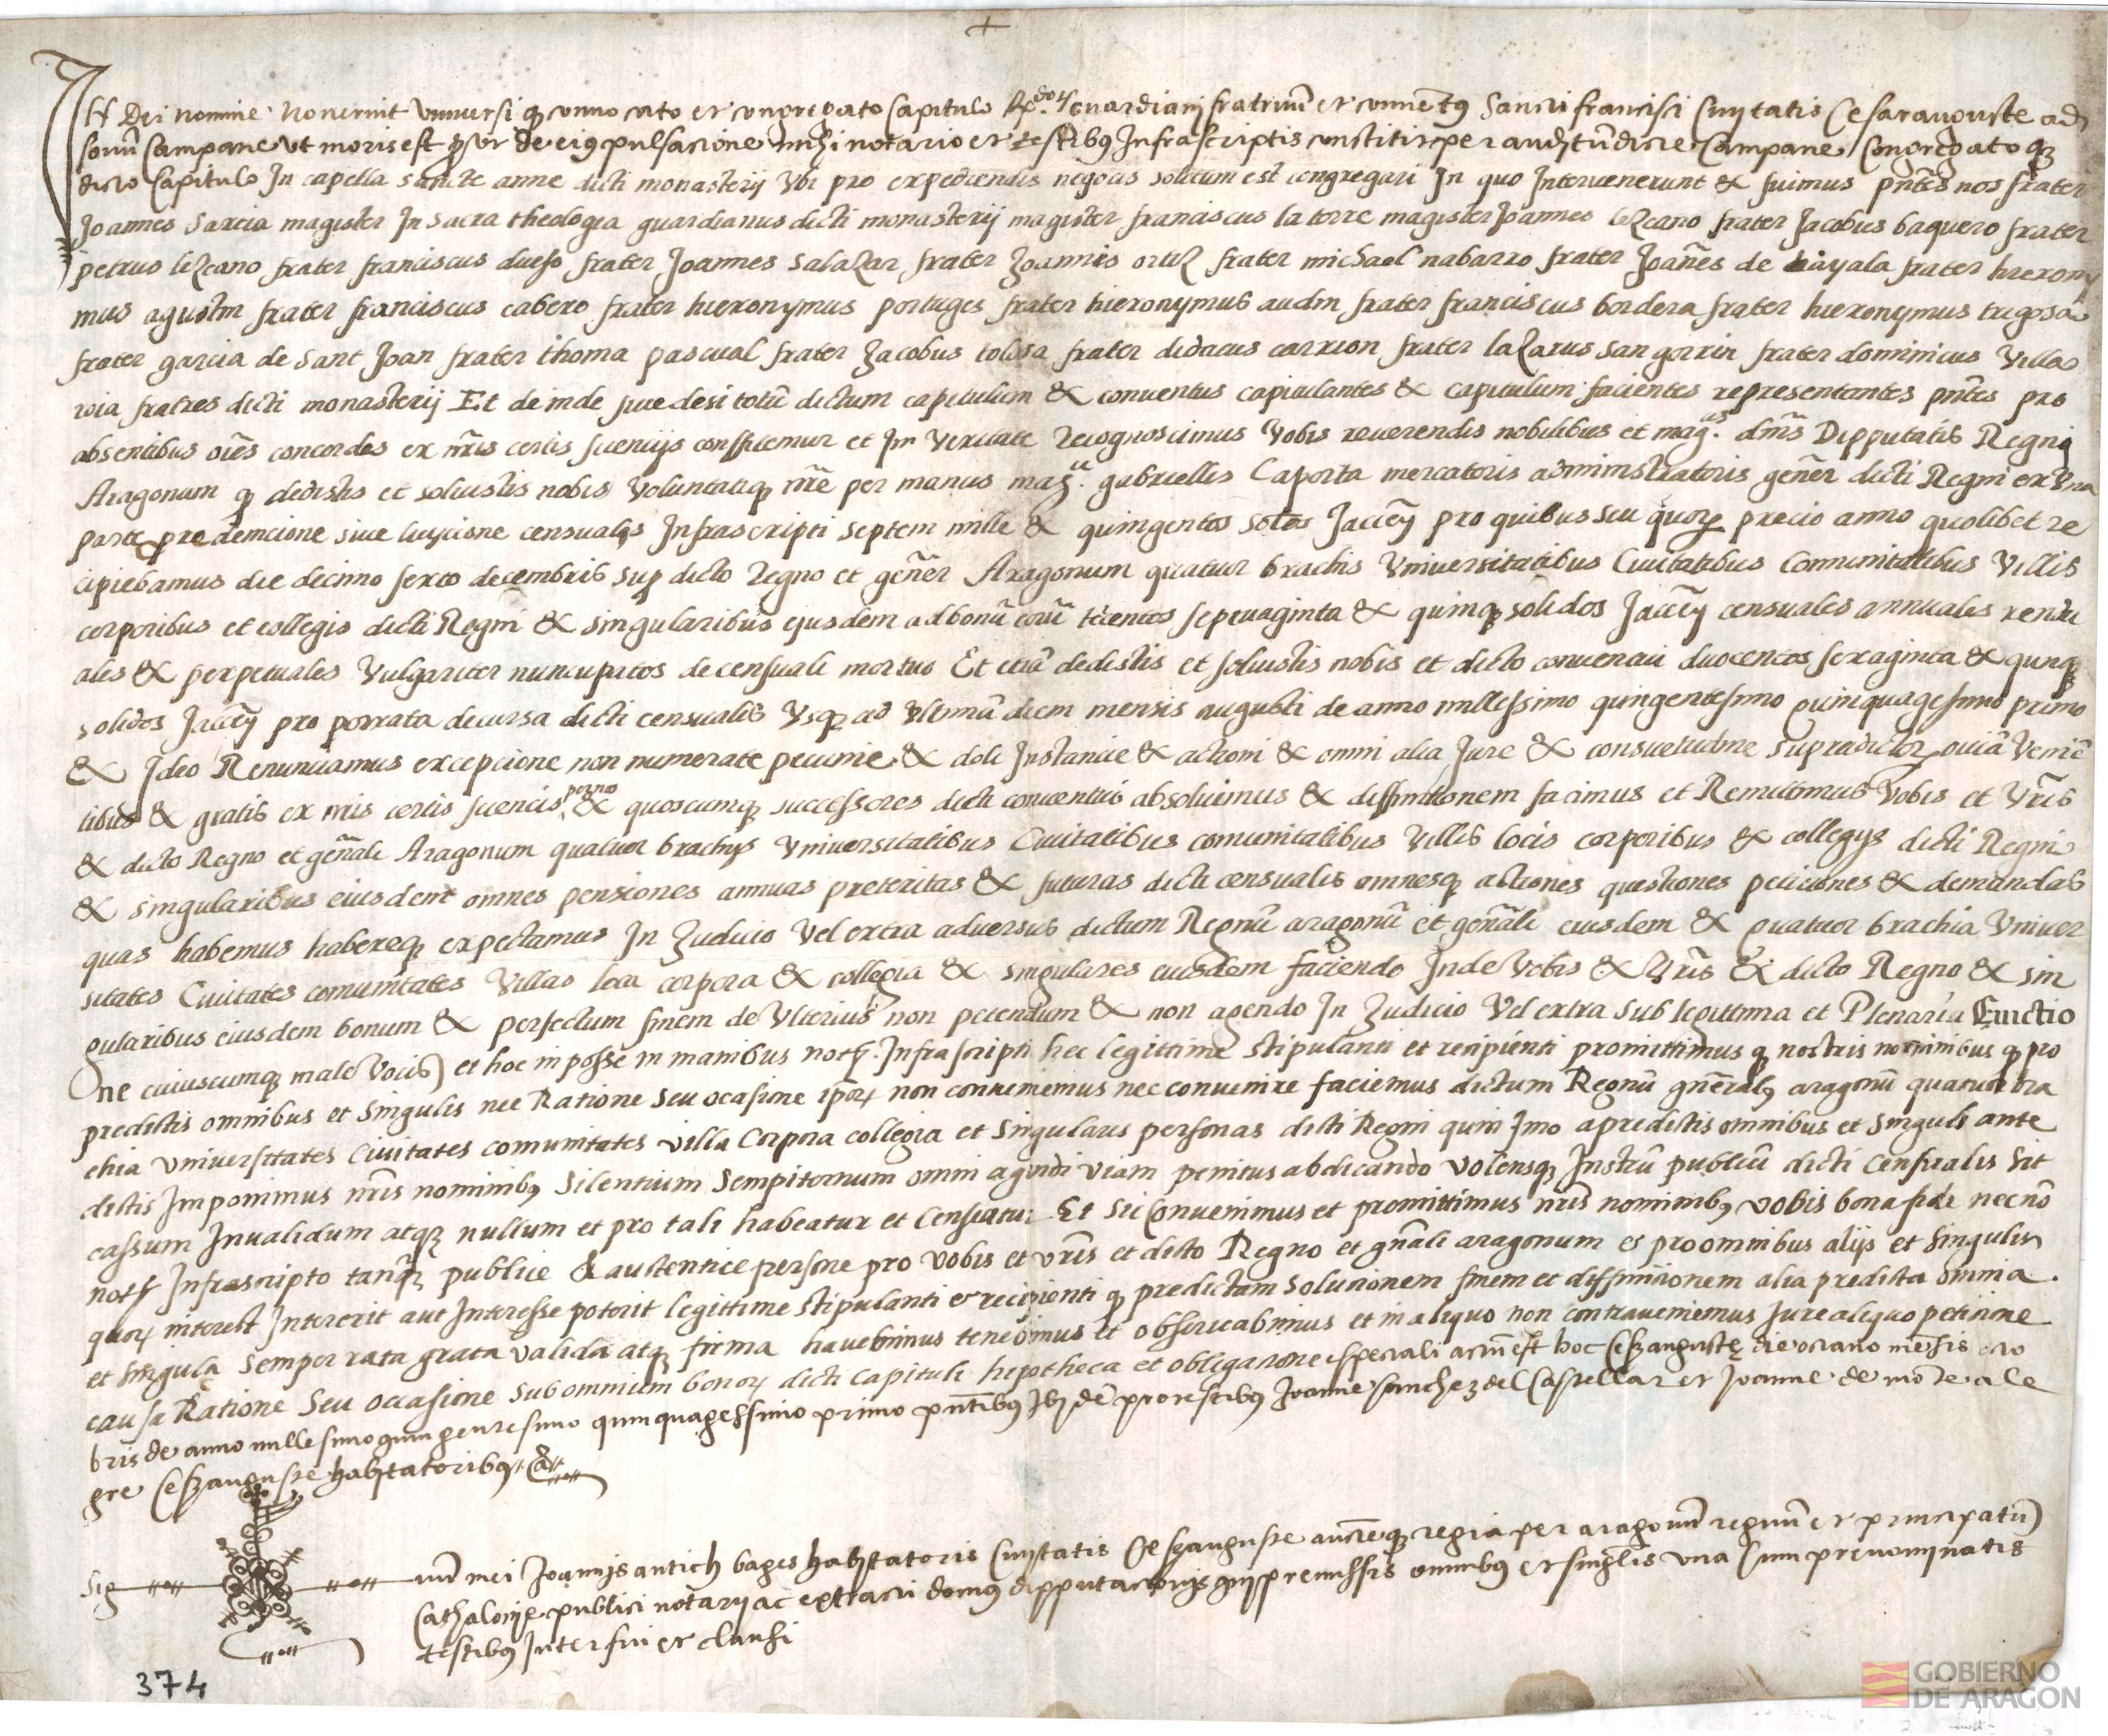 +
IN Dei nomine Noverint universi q̃ convocato et congregato Capitulo R.dorum guardiani fratrum et conventus Sancti francisci Civitatis Cesarauguste ad
sonũ Campane ut moris est de eius pulsacione mihi notario et testibus Infrascriptis constitit per auditũ dicte Campane Congregatoq̃
dicto Capitulo In capella sancte anne dicti monasterij Ubi pro expediendis negociis solitum est congregari In quo Intervenerunt & fuimus pñtes nos frater
Joannes Garcia magister In sacra theologia guardianus dicti monasterij magister franciscus la torre magister Joannes lezcano frater Jacobus baquero frater
petrus lezcano frater franciscus dueso frater Joannes Salazar frater Joannes ortiz frater michael nabarro frater Joañes de ayala frater hierony
mus agustin frater franciscus cabero frater hieronymus portuges frater hieronymus audin frater franciscus bordera frater hieronymus trigosa
frater garcia de sant Joan frater thoma pascual frater Jacobus tolosa frater didacus carrion frater lazarus san gorrin frater dominicus Villa
roia fratres dicti monasterij Et de inde sive desi totũ dictum capitulum & conventus capitulantes & capitulum facientes representantes pñtes pro
absentibus oẽs concordes ex nr̃is certis scientijs confitemur et In Veritate Recognoscimus Vobis reverendis nobilibus et mag.cis dm̃s Dipputatis Regni
Aragonum q̃ dedistis et solvistis nobis Voluntatiq̃ nr̃e per manus mag.ci gabrielis Caporta mercatoris administratoris geñer dicti Regni ex Una
parte pro redemcione sive luycione censualis Infrascripti septem mille & quingentos solos Jacceñ pro quibus seu quorum precio anno quolibet re
cipiebamus die decimo sexto decembris sup dicto Regno et geñer Aragonum quatuor brachiis Universitatibus Civitatibus Comunitatibus Villis
corporibus et collegis dicti Regni & singularibus ejusdem ad bonũ comũ trecentos septuaginta & quinq̃ solidos Jacceñ censuales annuales rendu
ales & perpetuales Vulgariter nuncupatos de censuali mortuo Et etiã dedistis et solvistis nobis et dicto conventui duocentos sexaginta & quinq̃
solidos Jacceñ pro porrata decursa dicti censualis Usq̃ ad Ultimũ diem mensis augusti de anno millessimo quingentesimo quinquagesimo primo
& Ideo Renunciamus excepcione non numerate pecunie & doli Instancie & actioni & omni alia Jure & consuetudine supradictorum obiã Veniẽ
tibus & gratis ex nr̃is certis scienciis per nos & quoscumq̃ successores dicti conventus absolvimus & diffinitionem facimus et Remittimus Vobis et Vr̃is
& dicto Regno et geñali Aragonum quatuor brachijs Universitatibus Civitatibus comunitatibus Villis locis corporibus & collegijs dicti Regni
& singularibus eiusdem omnes pensiones annuas preteritas & futuras dicti censualis omnesq̃ actiones questiones peticiones & demandas
quas habemus habereq̃ expectamus In Judicio Vel extra adversus dictum Regnũ aragonũ et geñali eiusdem & quatuor brachia Univer
sitates Civitates comunitates Villas loca corpora & collegia & singulares eiusdem faciendo Inde Vobis & Vr̃is & dicto Regno & sin
gularibus eiusdem bonum & perfectum finem de Ulterius non petendum & non agendo In Judicio Vel extra sub legittima et Plenaria Evictio
ne cuiuscumq̃ male Vocis et hoc in posse in manibus not.y Infrascripti hec legittime stipulanti et recipienti promittimus q̃ nostris nominibus q̃ pro
predictis omnibus et singulis nec Ratione seu ocasione ip̃orum non conveniemus nec convenire faciemus dictum Regnũ gñerals aragonũ quatuor bra
chia universitates Civitates comunitates villa Corpora collegia et singulares personas dicti Regni quin Imo a predictis omnibus et singulis ante
dictis Imponimus nr̃is nominibus Silentium Sempiternum omni agendi viam penitus abdicando volensq̃ Instrũ publicũ dicti Censualis sit
cassum Invalidum atq̃ nullum et pro tali habeatur et Censeatur Et sic Convenimus et promittimus nr̃is nominibus vobis bona fide necnõ
not.y Infrascripto tanq̃ publice & autentice persone pro vobis et vr̃is et dicto Regno et gñali aragonum et pro omnibus alijs et singulis
quorum interest Intererit aut Interesse poterit legittime stipulanti et recipienti q̃ predictam solucionem finem et diffinicionem alia predicta omnia
et singula semper rata grata valida atq̃ firma havebimus tenebimus et observabimus et in aliquo non contraveniemus Jure aliquo peticione
causa Ratione seu occasione sub omnium bonorum dicti Capituli hepotheca et obligacione speciali actũ est hoc Cesarauguste die octavo mẽsis octo
bris de anno millesimo quingentesimo quinquagessimo primo pñtibus Ibidẽ pro testibus Joanne sanchez del Castellar et Joanne de mõte ale
gre Cesarauguste habitatoribus
Sig num mei Joannis antich bages habitatoris Civitatis Cesarauguste auc̃teq̃ regia per aragonũ regnũ et principatũ
Cathalonie publici notarij ac extracti domus dipputacionis qui premissis omnibus et singlis una Cum prenominatis
testibus Interfui et clausi
374
GOBIERNO
DE ARAGON